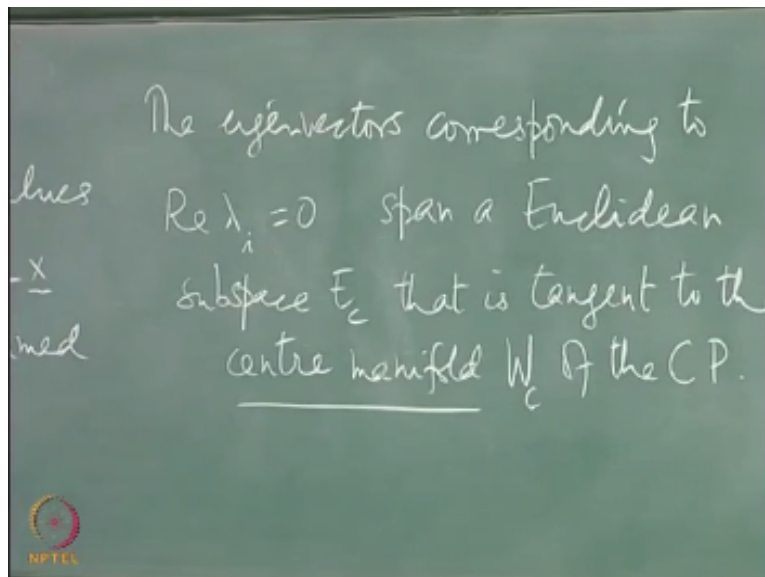 The eigenvectors corresponding to
lues
Re λᵢ = 0 span a Euclidean
x
subspace E_c that is tangent to th
med
centre manifold W_c of the CP.
NPTEL